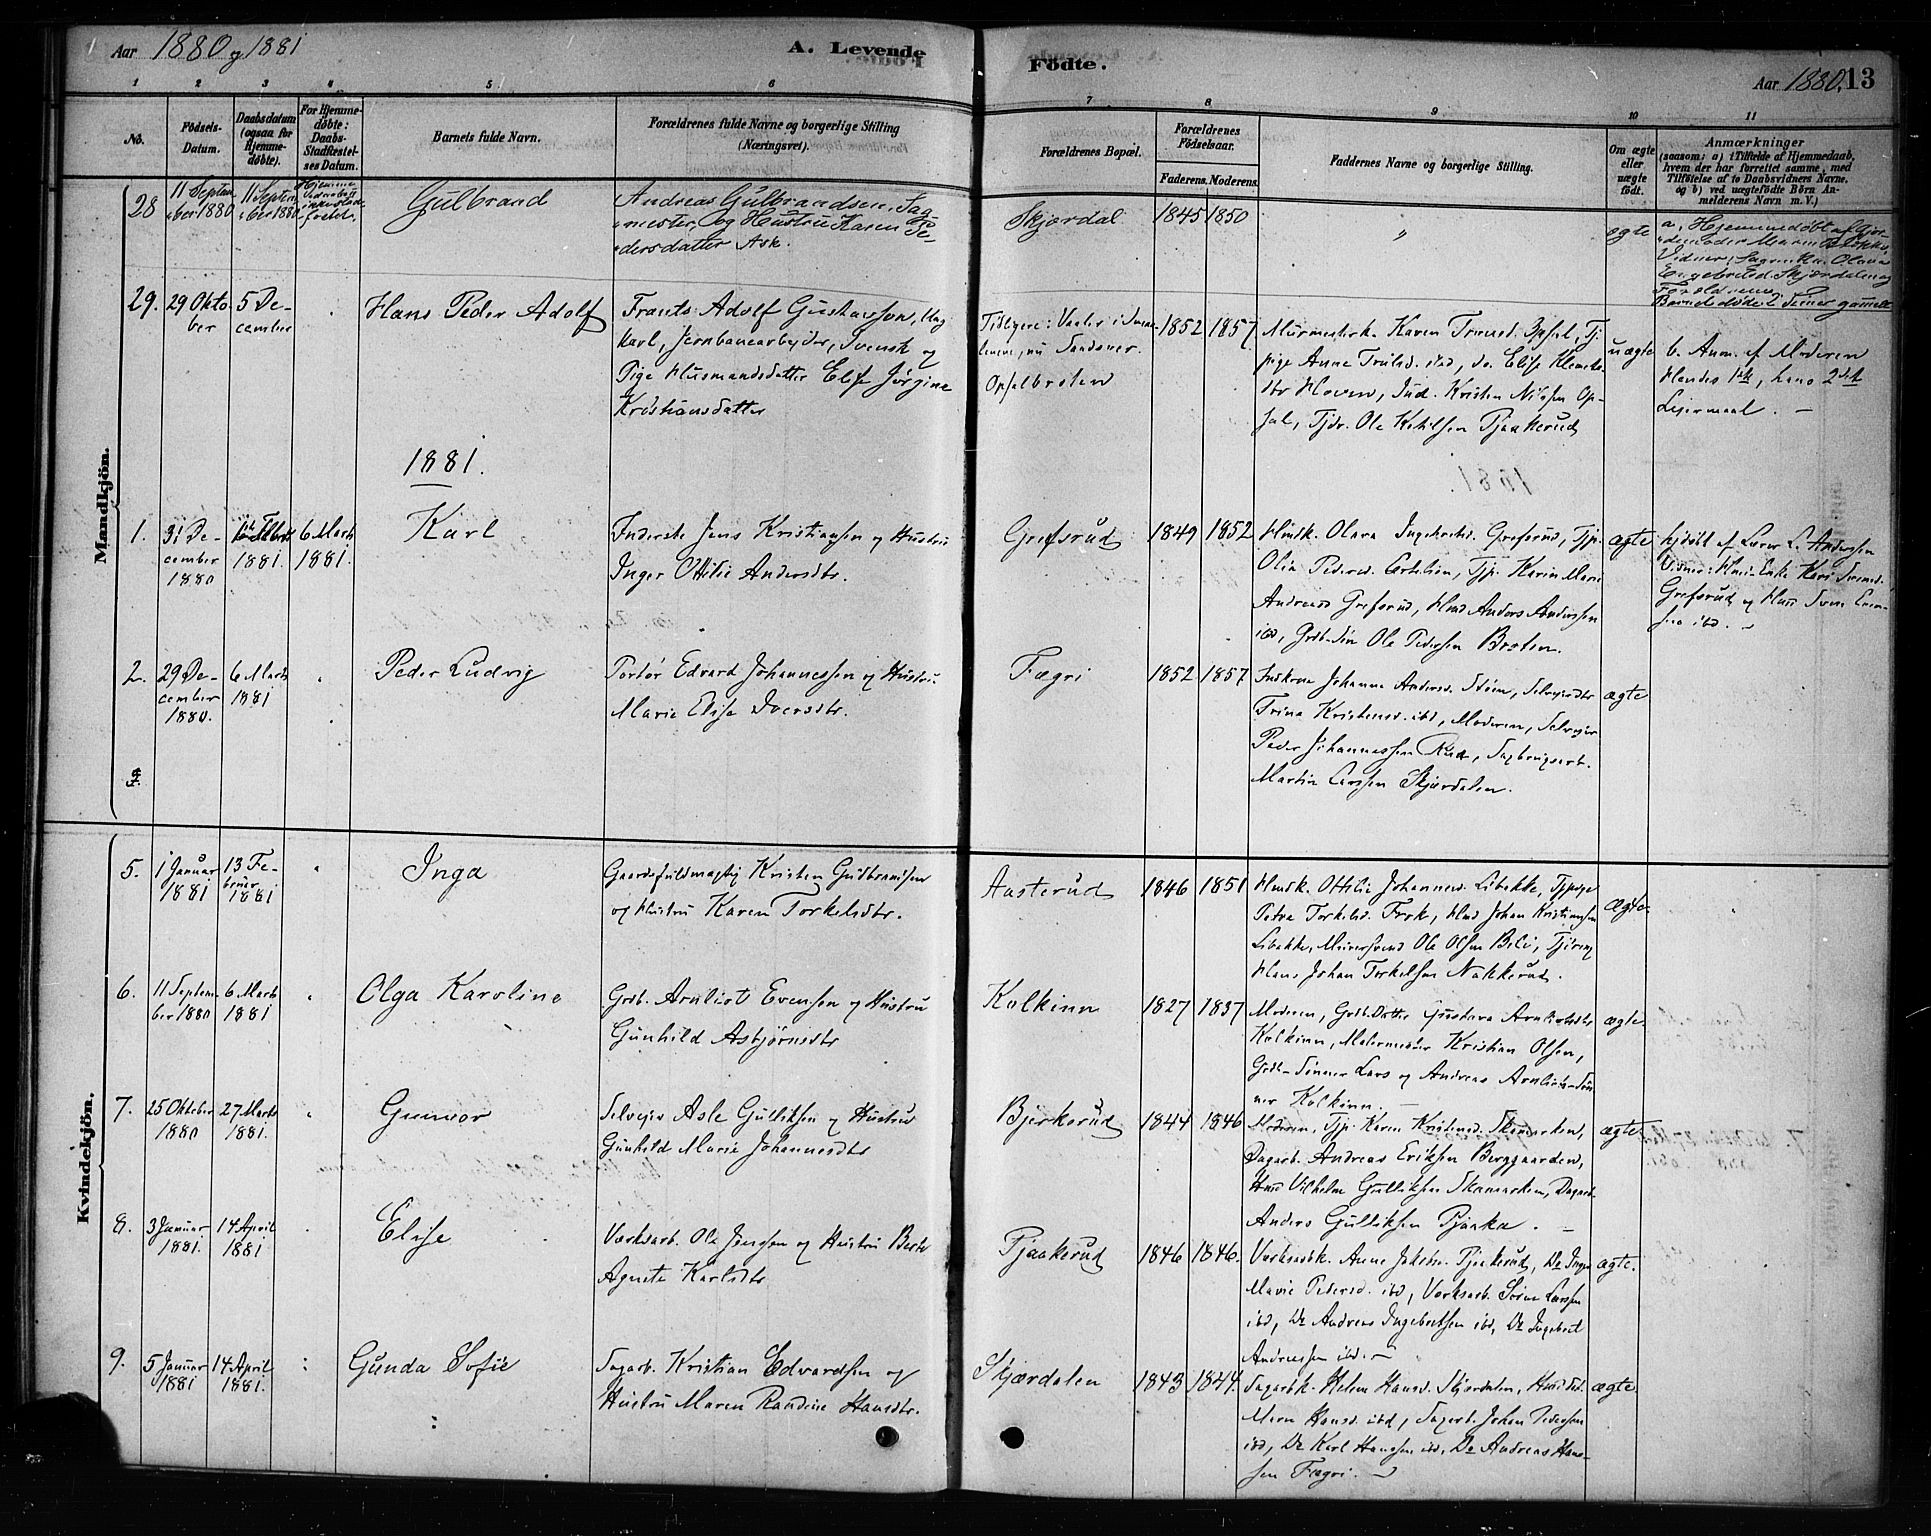 Aar 1880 og 1881
A. Levende
Födte.
Aar 1880. 13
1 2 3 4 5 6 7 8 9 10 11
No.
Födsels-
Datum.
Daabsdatum
(ogsaa for
Hjemme-
döbte).
For Hjemme-
döbte:
Daabs-
Stadfæstel-
ses Datum.
Barnets fulde Navn.
Forældrenes fulde Navne og borgerlige Stilling
(Næringsvei).
Forældrenes Bopæl.
Forældrenes
Födselsaar.
Faderens. Moderens.
Faddernes Navne og borgerlige Stilling.
Om ægte
eller
uægte
födt.
Anmærkninger
(saasom: a) i Tilfælde af Hjemmedaab,
hvem der har forrettet samme, med
Tilföielse af to Daabsvidners Navne.
og b) ved uægtefödte Börn An-
melderens Navn m. V.)
Mandkjön.
28
11 Septem
ber 1880
11 Septem
ber 1880
Gulbrand
Andreas Gulbrandsen, Sag-
mester, og Hustru Karen Pe-
dersdatter Ask.
Skjørdal
1845 1850
"
ægte
a, Hjemmedøbt af Gjor-
demoder Maren
Vidner, Sagm.k. Olava
Engebretsd. Skjærdalen og
Forældrene
Barnet døde 2 Timer gammelt
29.
29 Okto
ber
5 De-
cember
Hans Peder Adolf
Frants Adolf Gustavsson, Ung-
karl, Jernbanearbejder, Svensk og
Pige Husmandsdatter Elise Jørgine
Kristiansdatter
Tidligere: Vaaler i Smaa-
lenene, nu Sandsver.
Opsalbraten
1852 1857
Murmesterk. Karen Trulsd. Opsal, Tj-
pige Anne Trulsd. ibd, do. Elise Klemets-
dtr Hoven, Ind. Kristen Nilssen Op-
sal, Tjdr. Ole Ketilsen Pjaakerud
uægte
b. Anm. af Moderen
Hendes 1ste, hans 2det
Leiermaal. –
1881.
1.
31 De-
cember
1880
1881.
6 Marts
1881.
Karl
Inderste Jens Kristiansen og Hustru
Inger Ottilie Andersdtr.
Grefsrud
1849 1852
Hmdk. Olava Ingebretsd. Grefsrud, Tjp.
Olia Pedersd. , Tjp. Karin Marie
Andreasd Grefsrud, Hmd Anders Anderssen
ibd, Grdb. Søn Ole Pedersen Braten.
ægte
hjdøbt af Lærer L. Anderssen
Vidner: Hmd. Enke Kari Svensd.
Grefsrud og Hmd Sven Even-
sen ibd. –
2.
29 De-
cember
1880.
6 Marts
1881
"
Peder Ludvig
Portør Edvard Johannessen og Hustru
Marie Elise Iversdtr.
Fægri
1852 1857
Indkone Johanne Andersd. Steen, Selveierdtr
Trina Kristensd. ibd, Moderen, Selveier
Peder Johannessen Rud, Sagbrugsarb.
Martin Larssen Skjærdalen.
ægte
Kvindekjön.
5.
1 Januar
1881
13 Fe-
bruar
1881
"
Inga
Gaardsfuldmægtig Kristen Gudbrandsen
og Hustru Karen Torkelsdtr.
Aasterud
1846 1851
Hmdk. Ottilie Johannesd. Libakke, Tjpige
Petra Torkelsd. Fosk, Hmd Johan Kristiansen
Libakke, Meiersvend Ole Olsen Bili, Tjdreng
Hans Johan Torkelsen Nakkerud.
ægte.
6.
11 Septem-
ber 1880
6 Marts
1881
"
Olga Karoline
Grdb. Arnliot Evensen og Hustru
Gunhild Asbjørnsdtr
Kolkinn
1827 1837
Moderen, Grdb.Datter Gustava Arnliotsdtr
Kolkinn, Malermester Kristian Olsen,
Grdb-Sønner Lars og Andreas Arnliots-Søn
ner Kolkinn. –
ægte.
7.
25 Oktober
1880
27 Marts
1881.
"
Gunvor
Selveier Asle Gulliksen og Hustru
Gunhild Marie Johannesdtr
Bjerkerud
1844 1846
Moderen, Tjp. Karen Kristensd. Skamarken,
Dagarb. Andreas Eriksen Berggaarden,
Hmd Vilhelm Gulliksen Skamarken, Dagarb.
Anders Gulliksen Pjaaka. –
ægte.
8.
3 Januar
1881.
14 April
1881
Elise
Værksarb. Ole Jenssen og Hustru Berte
Agnete Karlsdtr
Pjaakerud
1846 1846.
Værksarbk. Anne Jakobs. Pjaakerud, Do Inger
Marie Pedersd. ibd, Værksarb. Søren Larssen
ibd, Do Andreas Ingebretsen ibd, Do Ingebret
Andreassen ibd. –
ægte.
9.
5 Januar
1881
14 April
1881.
Gunda Sofie
Sagarb. Kristian Edvardsen og
Hustru Maren Randine Hansdtr.
Skjærdalen
1843 1844.
Sagarbk. Helene Hansd. Skjærdalen,
Maren Hansd. ibd, Sagarb. Johan Pedersen
ibd, Do Karl Hanssen ibd, Do Andreas Hans-
sen Fægri. –
ægte.